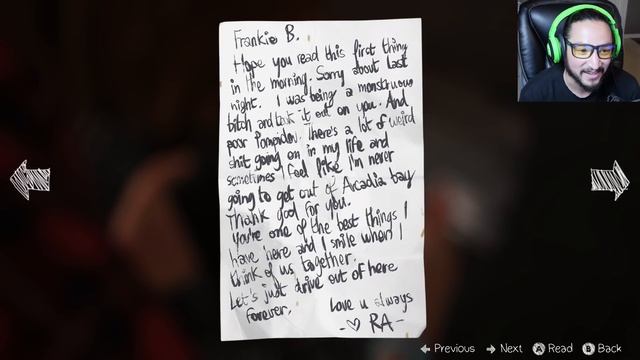 Frankie B.
Hope you read this first thing
in the morning. Sorry about last
night. I was being a monstruous
bitch and took it out on you. And
poor Pompidou. There's a lot of weird
shit going on in my life and
sometimes I feel like I'm never
going to get out of Arcadia bay
Thank god for you.
You're one of the best things I
have here and I smile when I
think of us together.
Let's just drive out of here
forever.
Love u always
-♡ RA-
Previous Next A Read B Back